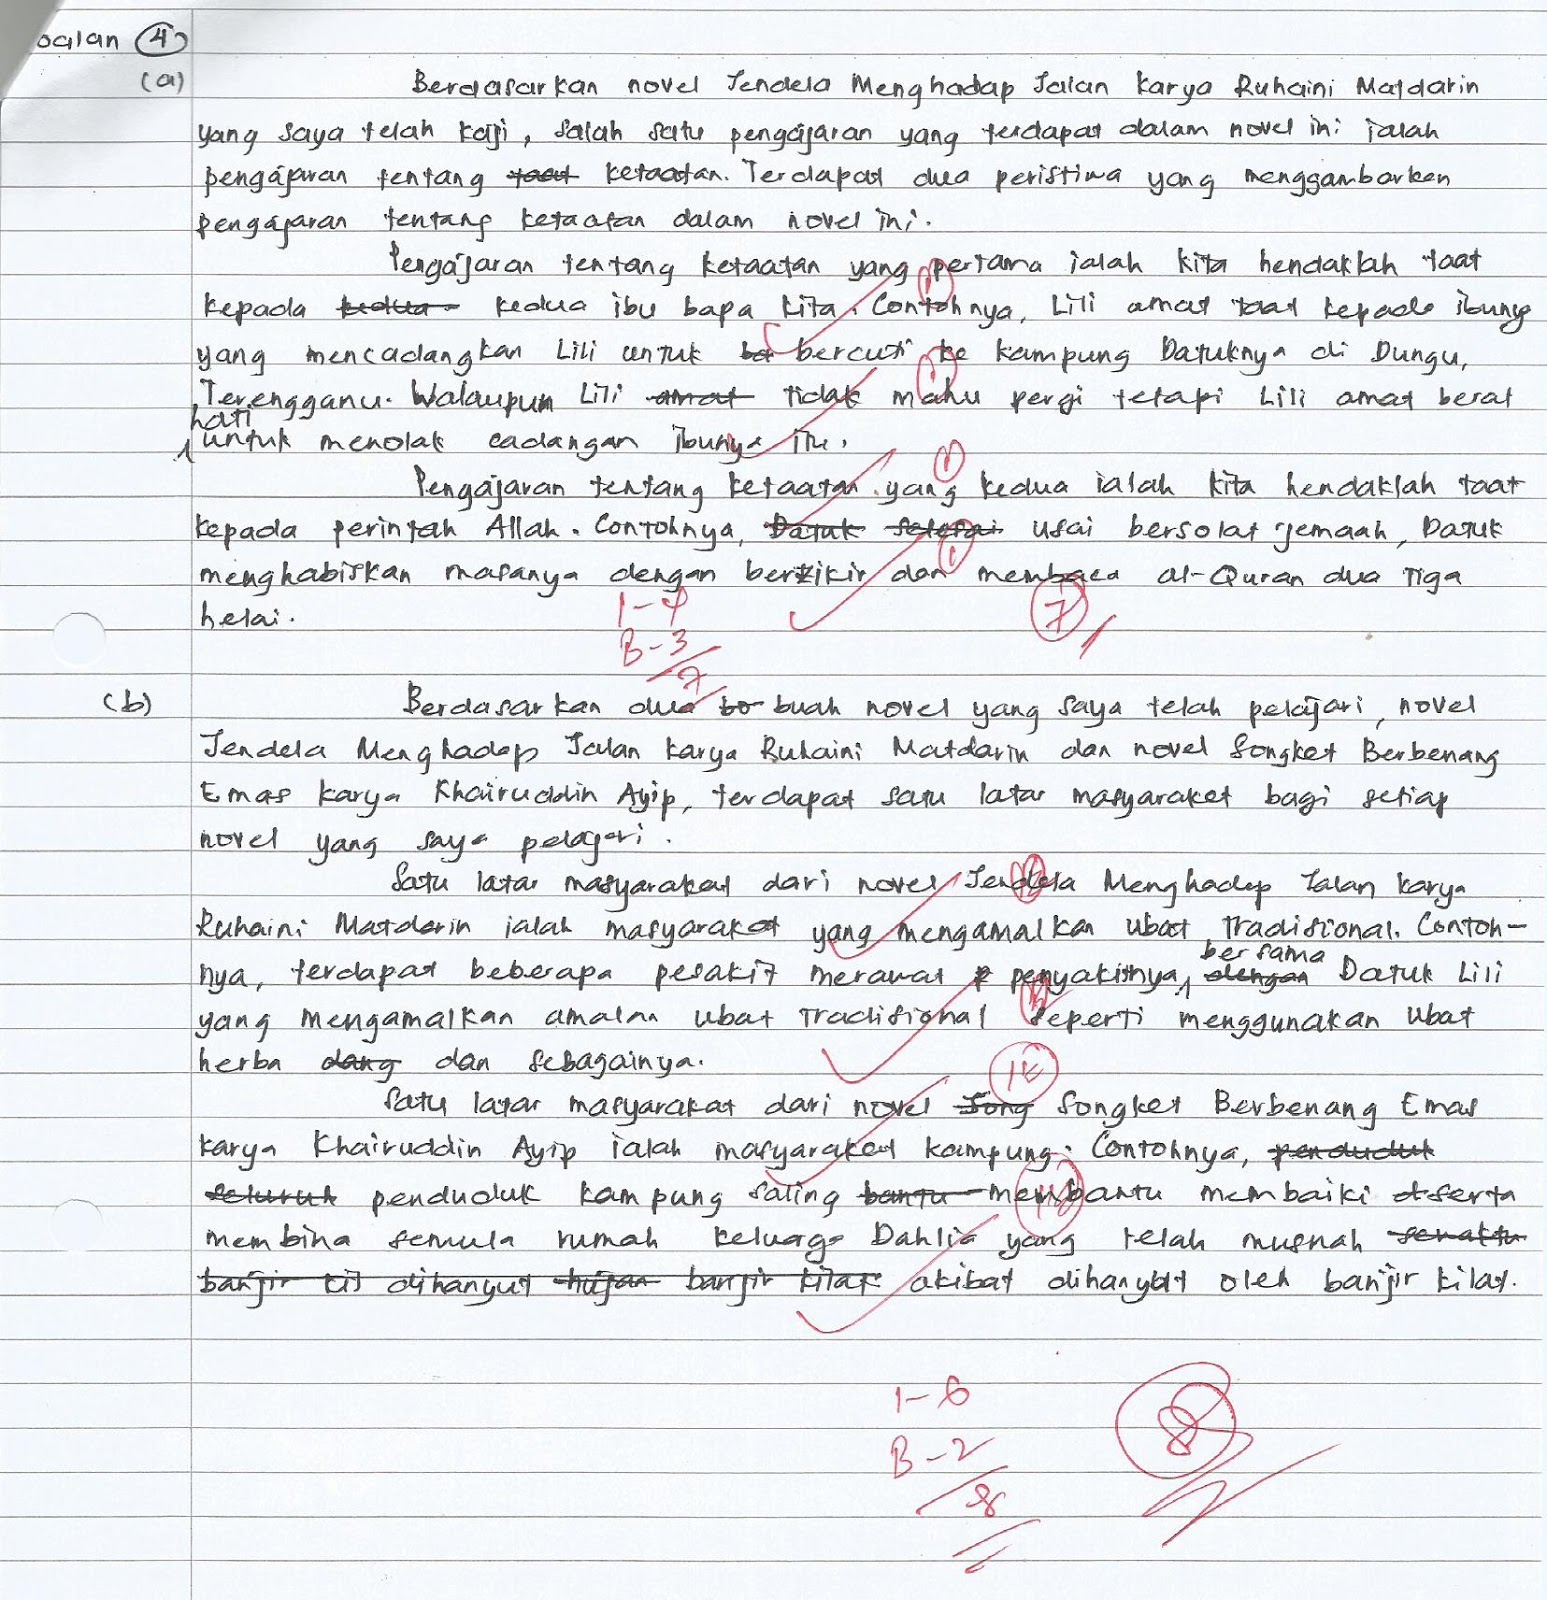 oalan 4
(a) Berdasarkan novel Jendela Menghadap Jalan karya Ruhaini Matdarin
yang saya telah kaji, salah satu pengajaran yang terdapat dalam novel ini ialah
pengajaran tentang taat ketaatan. Terdapat dua peristiwa yang menggambarkan
pengajaran tentang ketaatan dalam novel ini.
Pengajaran tentang ketaatan yang pertama ialah kita hendaklah taat
kepada kedua kedua ibu bapa kita. Contohnya, Lili amat taat kepada ibunya
yang mencadangkan Lili untuk be bercuti ke kampung Datuknya di Dungu,
Terengganu. Walaupun Lili amat tidak mahu pergi tetapi Lili amat berat
hati
untuk menolak cadangan ibunya itu.
Pengajaran tentang ketaatan yang kedua ialah kita hendaklah taat
kepada perintah Allah. Contohnya, Datuk selesai usai bersolat jemaah, Datuk
menghabiskan masanya dengan berzikir dan membaca al-Quran dua tiga
helai.
1-4
B-3
7
7
(b) Berdasarkan dua bo buah novel yang saya telah pelajari, novel
Jendela Menghadap Jalan karya Ruhaini Matdarin dan novel Songket Berbenang
Emas karya Khairuddin Ayip, terdapat satu latar masyarakat bagi setiap
novel yang saya pelajari.
Satu latar masyarakat dari novel Jendela Menghadap Jalan karya
Ruhaini Matdarin ialah masyarakat yang mengamalkan ubat tradisional. Contoh-
bersama
nya, terdapat beberapa pesakit merawat p penyakitnya dengan Datuk Lili
yang mengamalkan amalan ubat tradisional seperti menggunakan ubat
herba dang dan sebagainya.
Satu latar masyarakat dari novel Song Songket Berbenang Emas
karya Khairuddin Ayip ialah masyarakat kampung. Contohnya, penduduk
seluruh penduduk kampung saling bantu membantu membaiki serta
membina semula rumah keluarga Dahlia yang telah musnah sewaktu
banjir kil dihanyut hujan banjir kilat akibat dihanyut oleh banjir kilat.
1-6
B-2
8
8